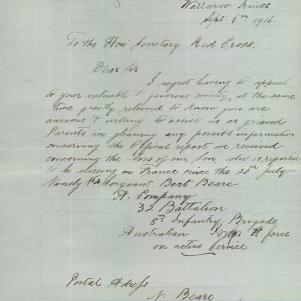 Wallaroo Mines
Sept 6th 1916.
To the Hon Secretary Red Cross.
Dear Sir
I regret having to appeal
to your valuable & generous society, at the same
time greatly relieved to know you are
anxious & willing to assist us as grieved
Parents in gleaning any possible information
concerning the Official report we received
concerning the loss of our son, who is reported
to be missing in France since the 20th July
Namely Sergeant Bert Beare
A. Company
32 Battalion
8th Infantry Brigade
Australian Force
on active Service
Postal Adress
N. Beare